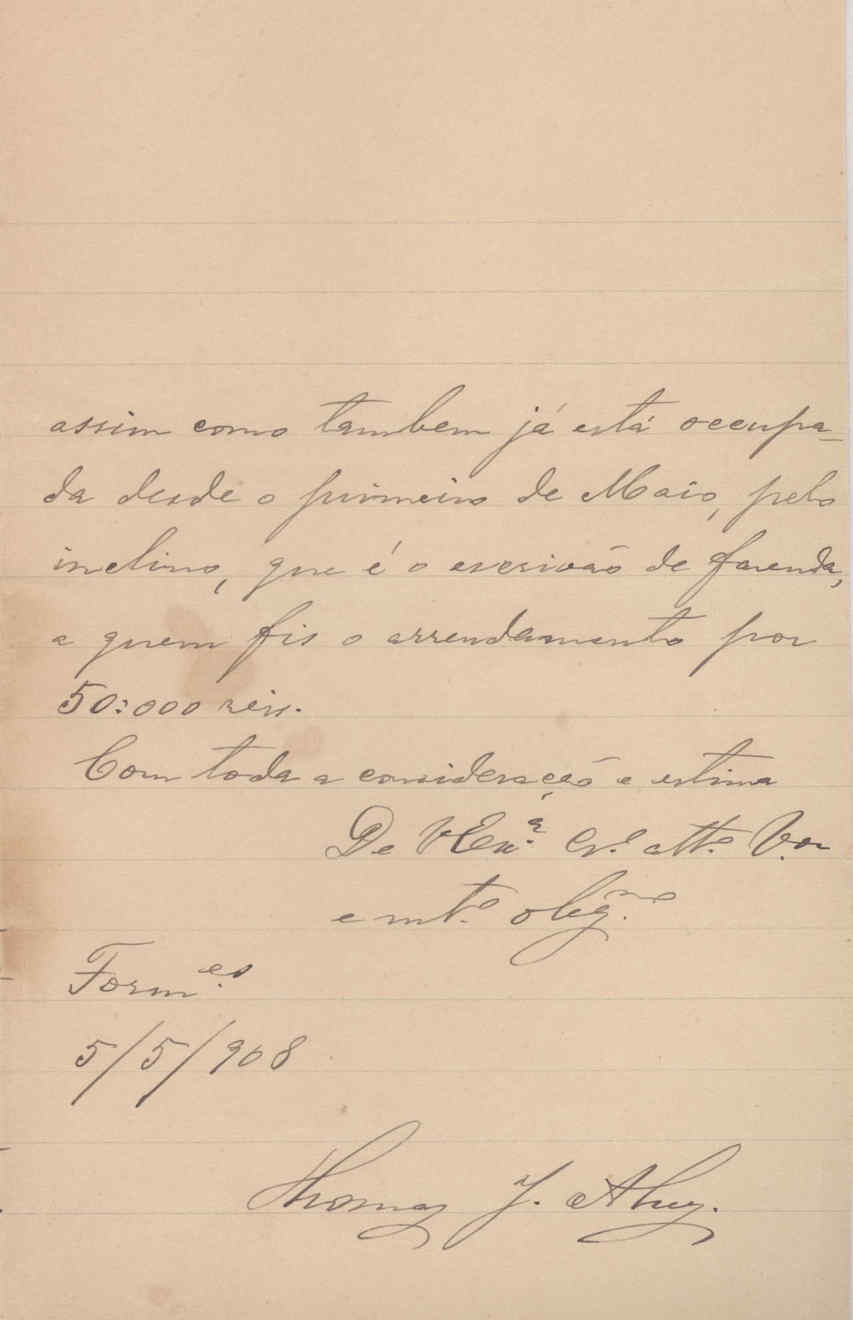 assim como tambem já está occupa-
da desde o primeiro de Maio, pelo
inclino, que é o escrivão de fazenda,
a quem fis o arrendamento por
50:000 reis.
Com toda a consideração e estima
De VExª. Cr.º Att.º V.or
e mt.º obrg.mo
Form.es
5/5/908
Thomaz J.